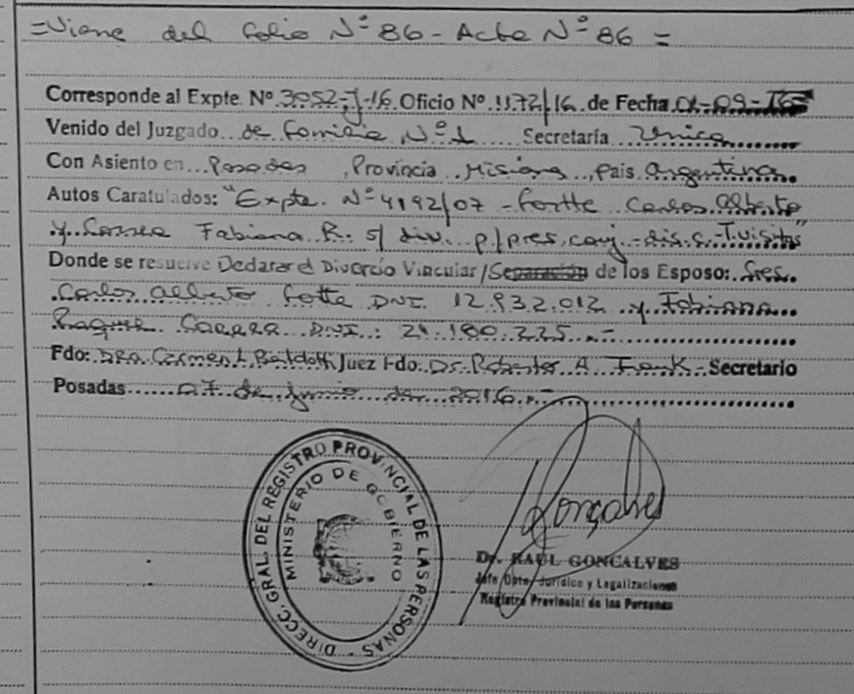 =Viene del folio Nº 86 - Acta Nº 86 =
Corresponde al Expte. Nº 3052-J-16 Oficio Nº 1172/16 de Fecha 01-09-16
Venido del Juzgado de Familia Nº 1 Secretaría Unica
Con Asiento en Posadas, Provincia Misiones, pais Argentina
Autos Caratulados: "Expte. Nº 4192/07 - Fortte Carlos Alberto
y Correa Fabiana R. s/ div. p/pres. conj. - dis. s. T. visitas"
Donde se resuelve Declarar el Divorcio Vincular/Separación de los Esposo: Sres.
Carlos Alberto Fortte DNI. 12.932.012 y Fabiana
Raquel Correa DNI.: 21.180.225.-
Fdo: Dra. Carmen L Juez Fdo: Dr. Roberto A Secretario
Posadas 07 de Junio de 2016.-
DIRECC. GRAL. DEL REGISTRO PROVINCIAL DE LAS PERSONAS
MINISTERIO DE GOBIERNO
Gonçalves
Dr. RAUL GONCALVES
Jefe Dpto. Jurídico y Legalizaciones
Registro Provincial de las Personas